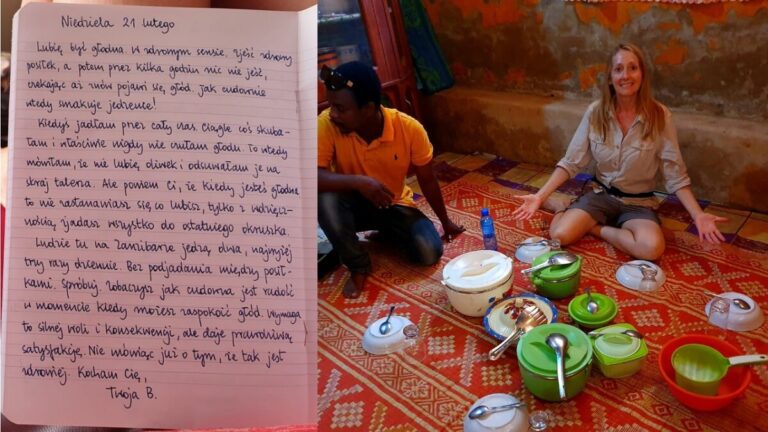 Niedziela 21 lutego
Lubię być głodna w zdrowym sensie. Zjeść zdrowy
posiłek, a potem przez kilka godzin nic nie jeść,
czekając aż znów pojawi się głód. Jak cudownie
wtedy smakuje jedzenie!
Kiedyś jadłam przez cały czas. Ciągle coś skuba-
łam i właściwie nigdy nie czułam głodu. To wtedy
mówiłam, że nie lubię oliwek i odsuwałam je na
skraj talerza. Ale powiem Ci, że kiedy jesteś głodna
to nie zastanawiasz się co lubisz, tylko z wdzięcz-
nością zjadasz wszystko do ostatniego okruszka.
Ludzie tu na Zanzibarze jedzą dwa, najwyżej
trzy razy dziennie. Bez podjadania między posił-
kami. Spróbuj. Zobaczysz jak cudowna jest radość
w momencie kiedy możesz zaspokoić głód. Wymaga
to silnej woli i konsekwencji, ale daje prawdziwą
satysfakcję. Nie mówiąc już o tym, że tak jest
zdrowiej. Kocham Cię,
Twoja B.